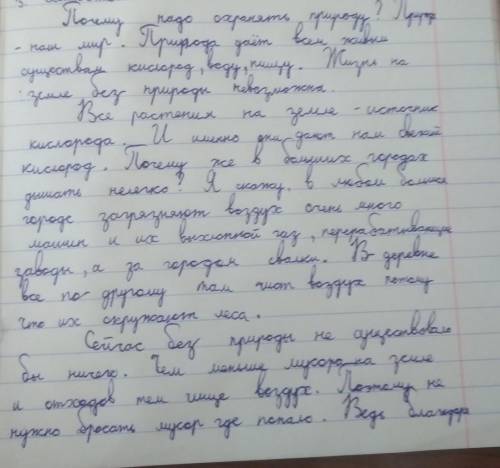 Почему надо охранять природу? Природа
- наш мир. Природа даёт всем живым
существам кислород, воду, пищу. Жизнь на
земле без природы невозможна.
Все растения на земле - источник
кислорода. И именно они дают нам свежий
кислород. Почему же в больших городах
дышать нелегко? Я скажу, в любом большом
городе загрязняют воздух очень много
машин и их выхлопной газ, перерабатывающие
заводы, а за городом свалки. В деревне
все по другому там чист воздух потому
что их окружают леса.
Сейчас без природы не существовало
бы ничего. Чем меньше мусора на земле
и отходов тем чище воздух. Поэтому не
нужно бросать мусор где попало. Ведь благодаря